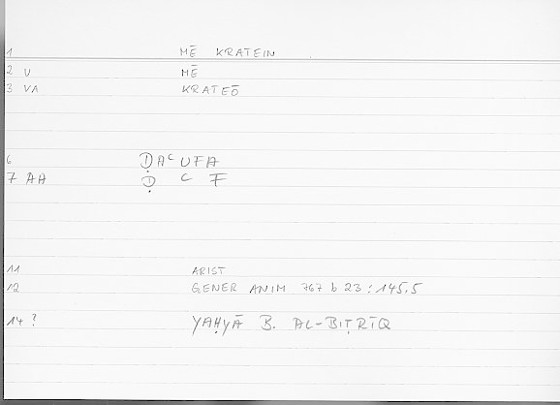 1 MĒ KRATEIN
2 U MĒ
3 VA KRATEŌ
6 ḌAᶜUFA
7 AA Ḍ ᶜ F
11 ARIST
12 GENER ANIM 767 b 23 : 145,5
14 ? YAḤYĀ B. AL-BIṬRĪQ